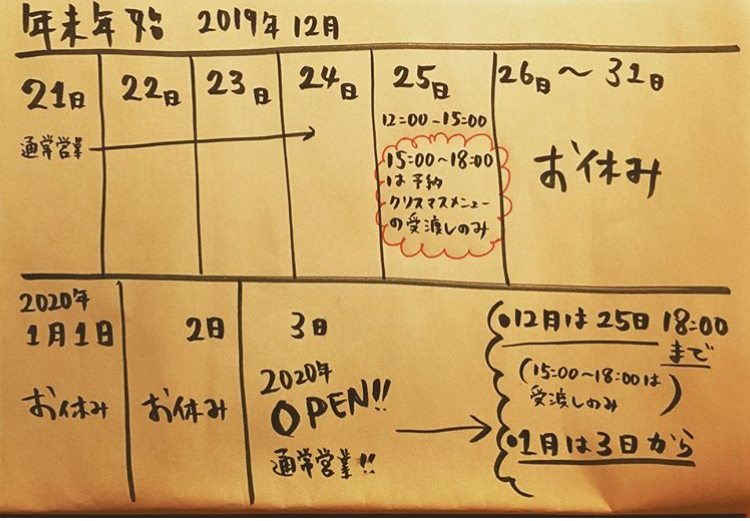 年末年始 2019年12月
21日 22日 23日 24日 25日 26日〜31日
通常営業
12:00-15:00
15:00~18:00
は予約
クリスマスメニュー
の受渡しのみ
お休み
2020年
1月1日 2日 3日
お休み お休み
2020年
OPEN!!
通常営業!!
•12月は25日 18:00
まで
(15:00~18:00は
受渡しのみ)
•1月は3日から